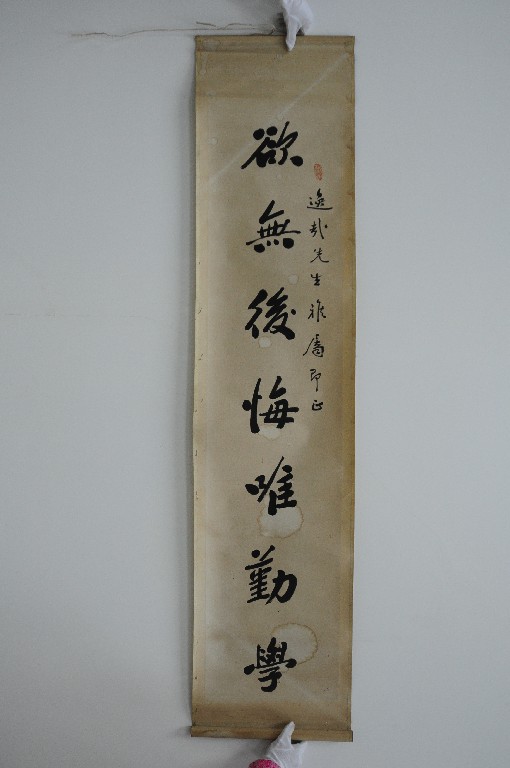 逸哉先生雅屬即正
欲無後悔唯勤學